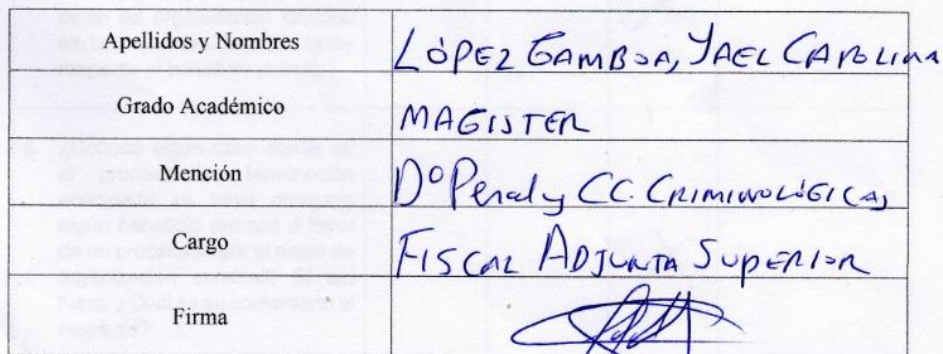 Apellidos y Nombres LÓPEZ GAMBOA, YAEL CAROLINA
Grado Académico MAGISTER
Mención Dº Penal y CC. CRIMINOLÓGICAS
Cargo FISCAL ADJUNTA SUPERIOR
Firma